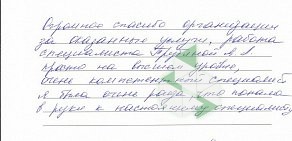 Огромное спасибо организации
за оказанные услуги, работа
специалиста А. А.
просто на высшем уровне,
очень компетентный специалист
я была очень рада, что попала
в руки к настоящему специалисту,